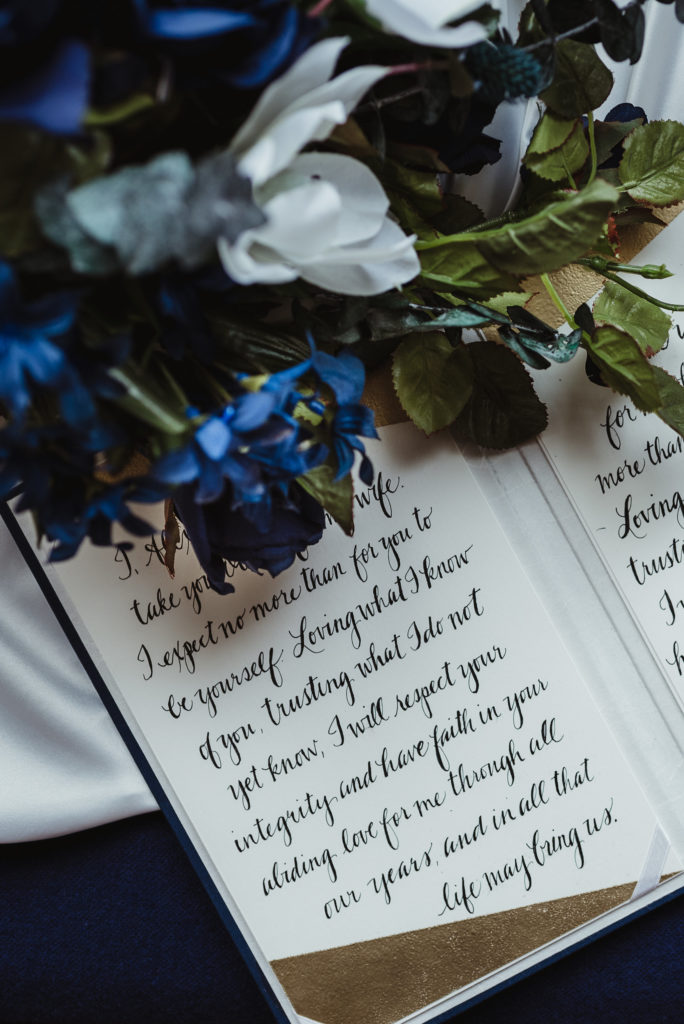 I, A
wife.
take you
no more than for you to
I expect no more than for you to
be yourself. Loving what I know
of you, trusting what I do not
yet know, I will respect your
integrity and have faith in your
abiding love for me through all
our years, and in all that
life may bring us.
for
more than
Loving
trusti
I